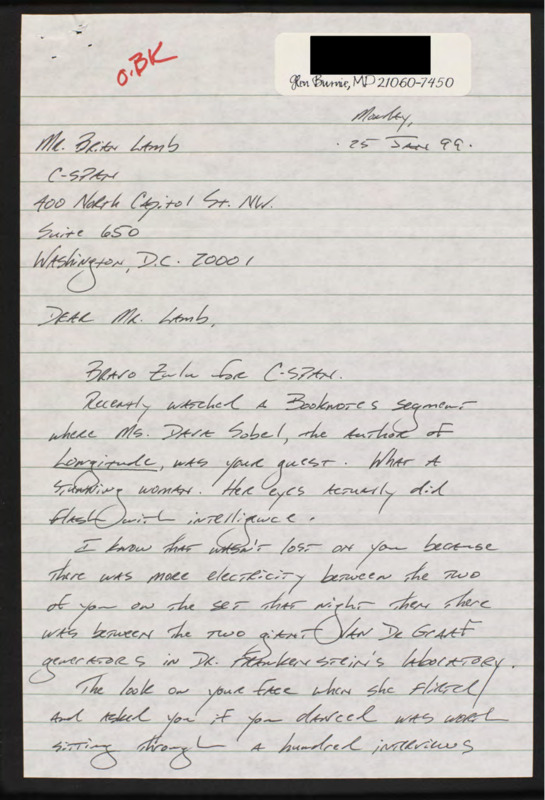 O.BK
Glen Burnie, MD 21060-7450
Monday,
25 JAN 99.
Mr. Brian Lamb
C-SPAN
400 North Capitol St. NW.
Suite 650
Washington, D.C. 20001
Dear Mr. Lamb,
Bravo Zulu for C-SPAN.
Recently watched a Booknotes segment
where Ms. Dava Sobel, the author of
Longitude, was your guest. What a
stunning woman. Her eyes actually did
flash with intelligence.
I know that wasn't lost on you because
there was more electricity between the two
of you on the set that night then there
was between the two giant Van De Graaf
generators in Dr. Frankenstein's laboratory.
The look on your face when she flirted
and asked you if you danced was worth
sitting through a hundred interviews